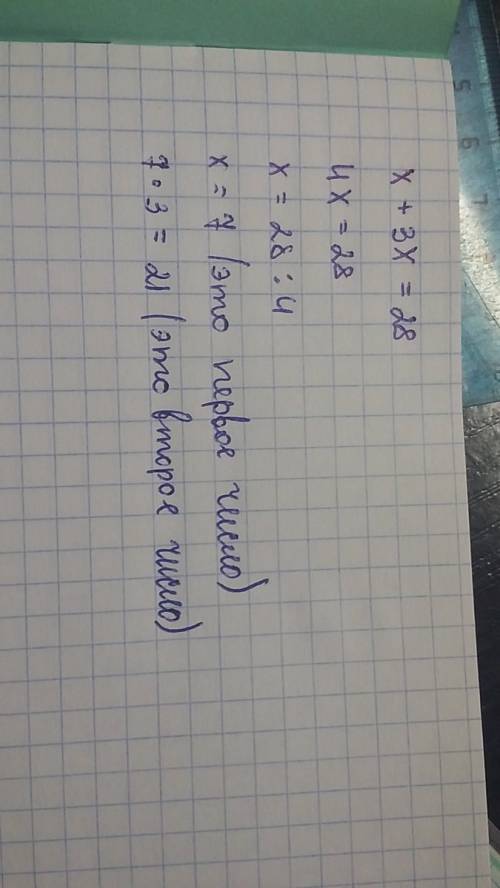 x + 3x = 28
4x = 28
x = 28 : 4
x = 7 (это первое число)
7 • 3 = 21 (это второе число)
5
6
7